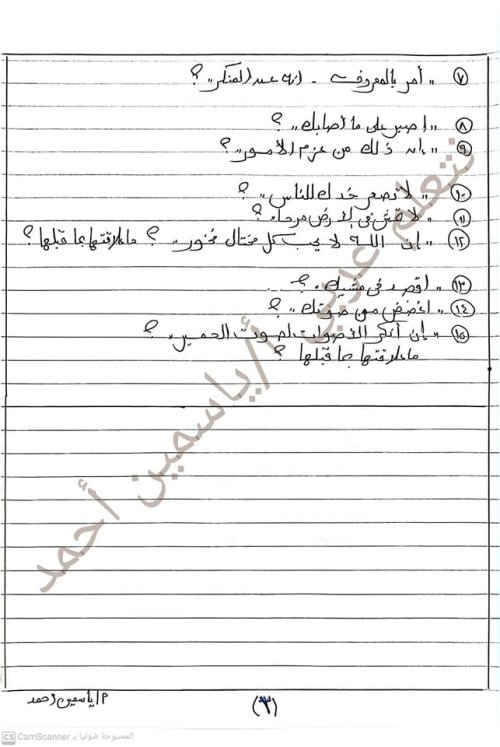 ٧ "أمر بالمعروف - انه عن المنكر"؟
٨ "اصبر على ما أصابك"؟
٩ "إن ذلك من عزم الأمور"؟
١٠ "لا تصعر خدك للناس"؟
١١ "لا تمش فى الأرض مرحا"؟
١٢ "إن الله لا يحب كل مختال فخور"؟ ما علاقتها بما قبلها؟
١٣ "اقصد فى مشيك"؟
١٤ "اغضض من صوتك"؟
١٥ "إن أنكر الأصوات لصوت الحمير"؟
ما علاقتها بما قبلها؟
نتعلم عربي أ/ياسمين أحمد
(٣)
أ/ ياسمين أحمد
CS CamScanner الممسوحة ضوئيا بـ